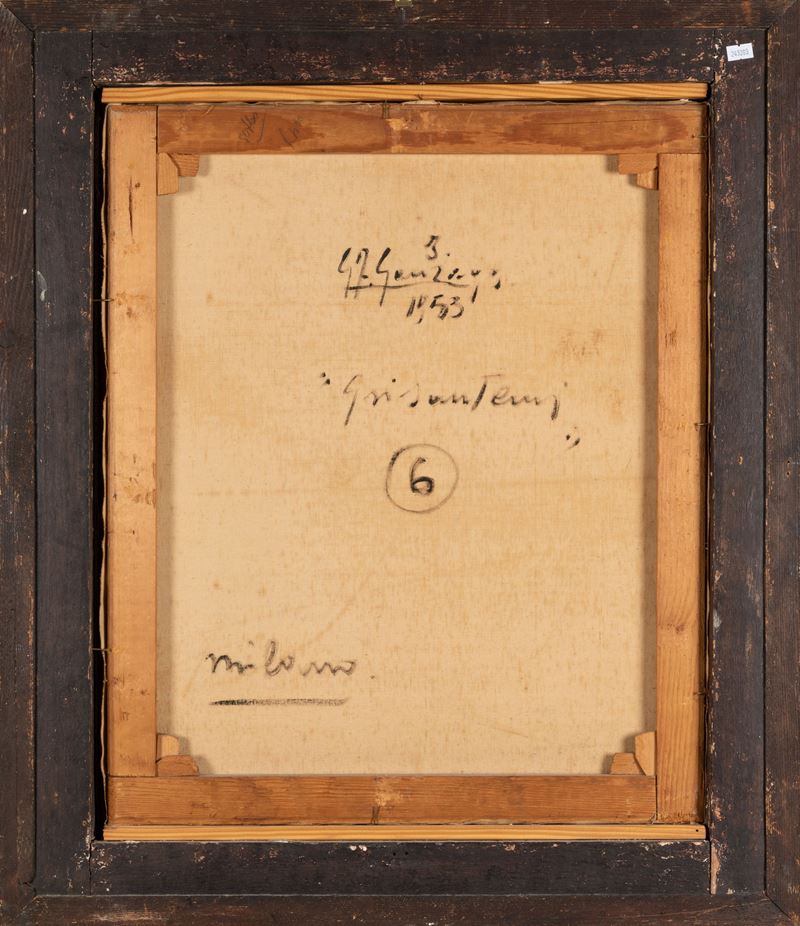 243203
3.
G.F. Gonzaga
1953
"Grisantemi"
6
milano.